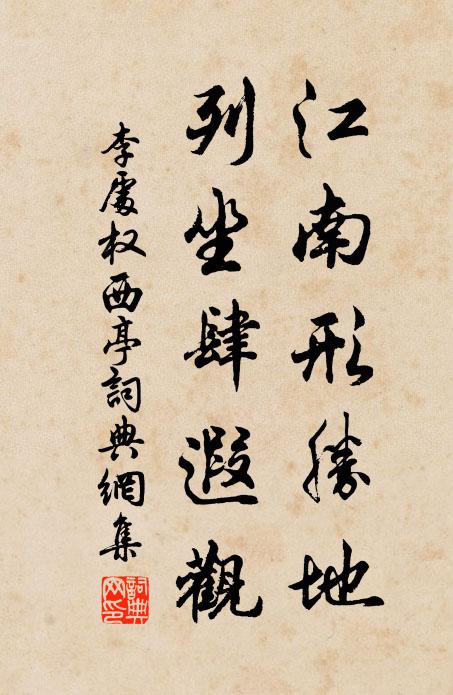 江南形勝地
列坐肆遐觀
李處权西亭詞典網集
詞典網印